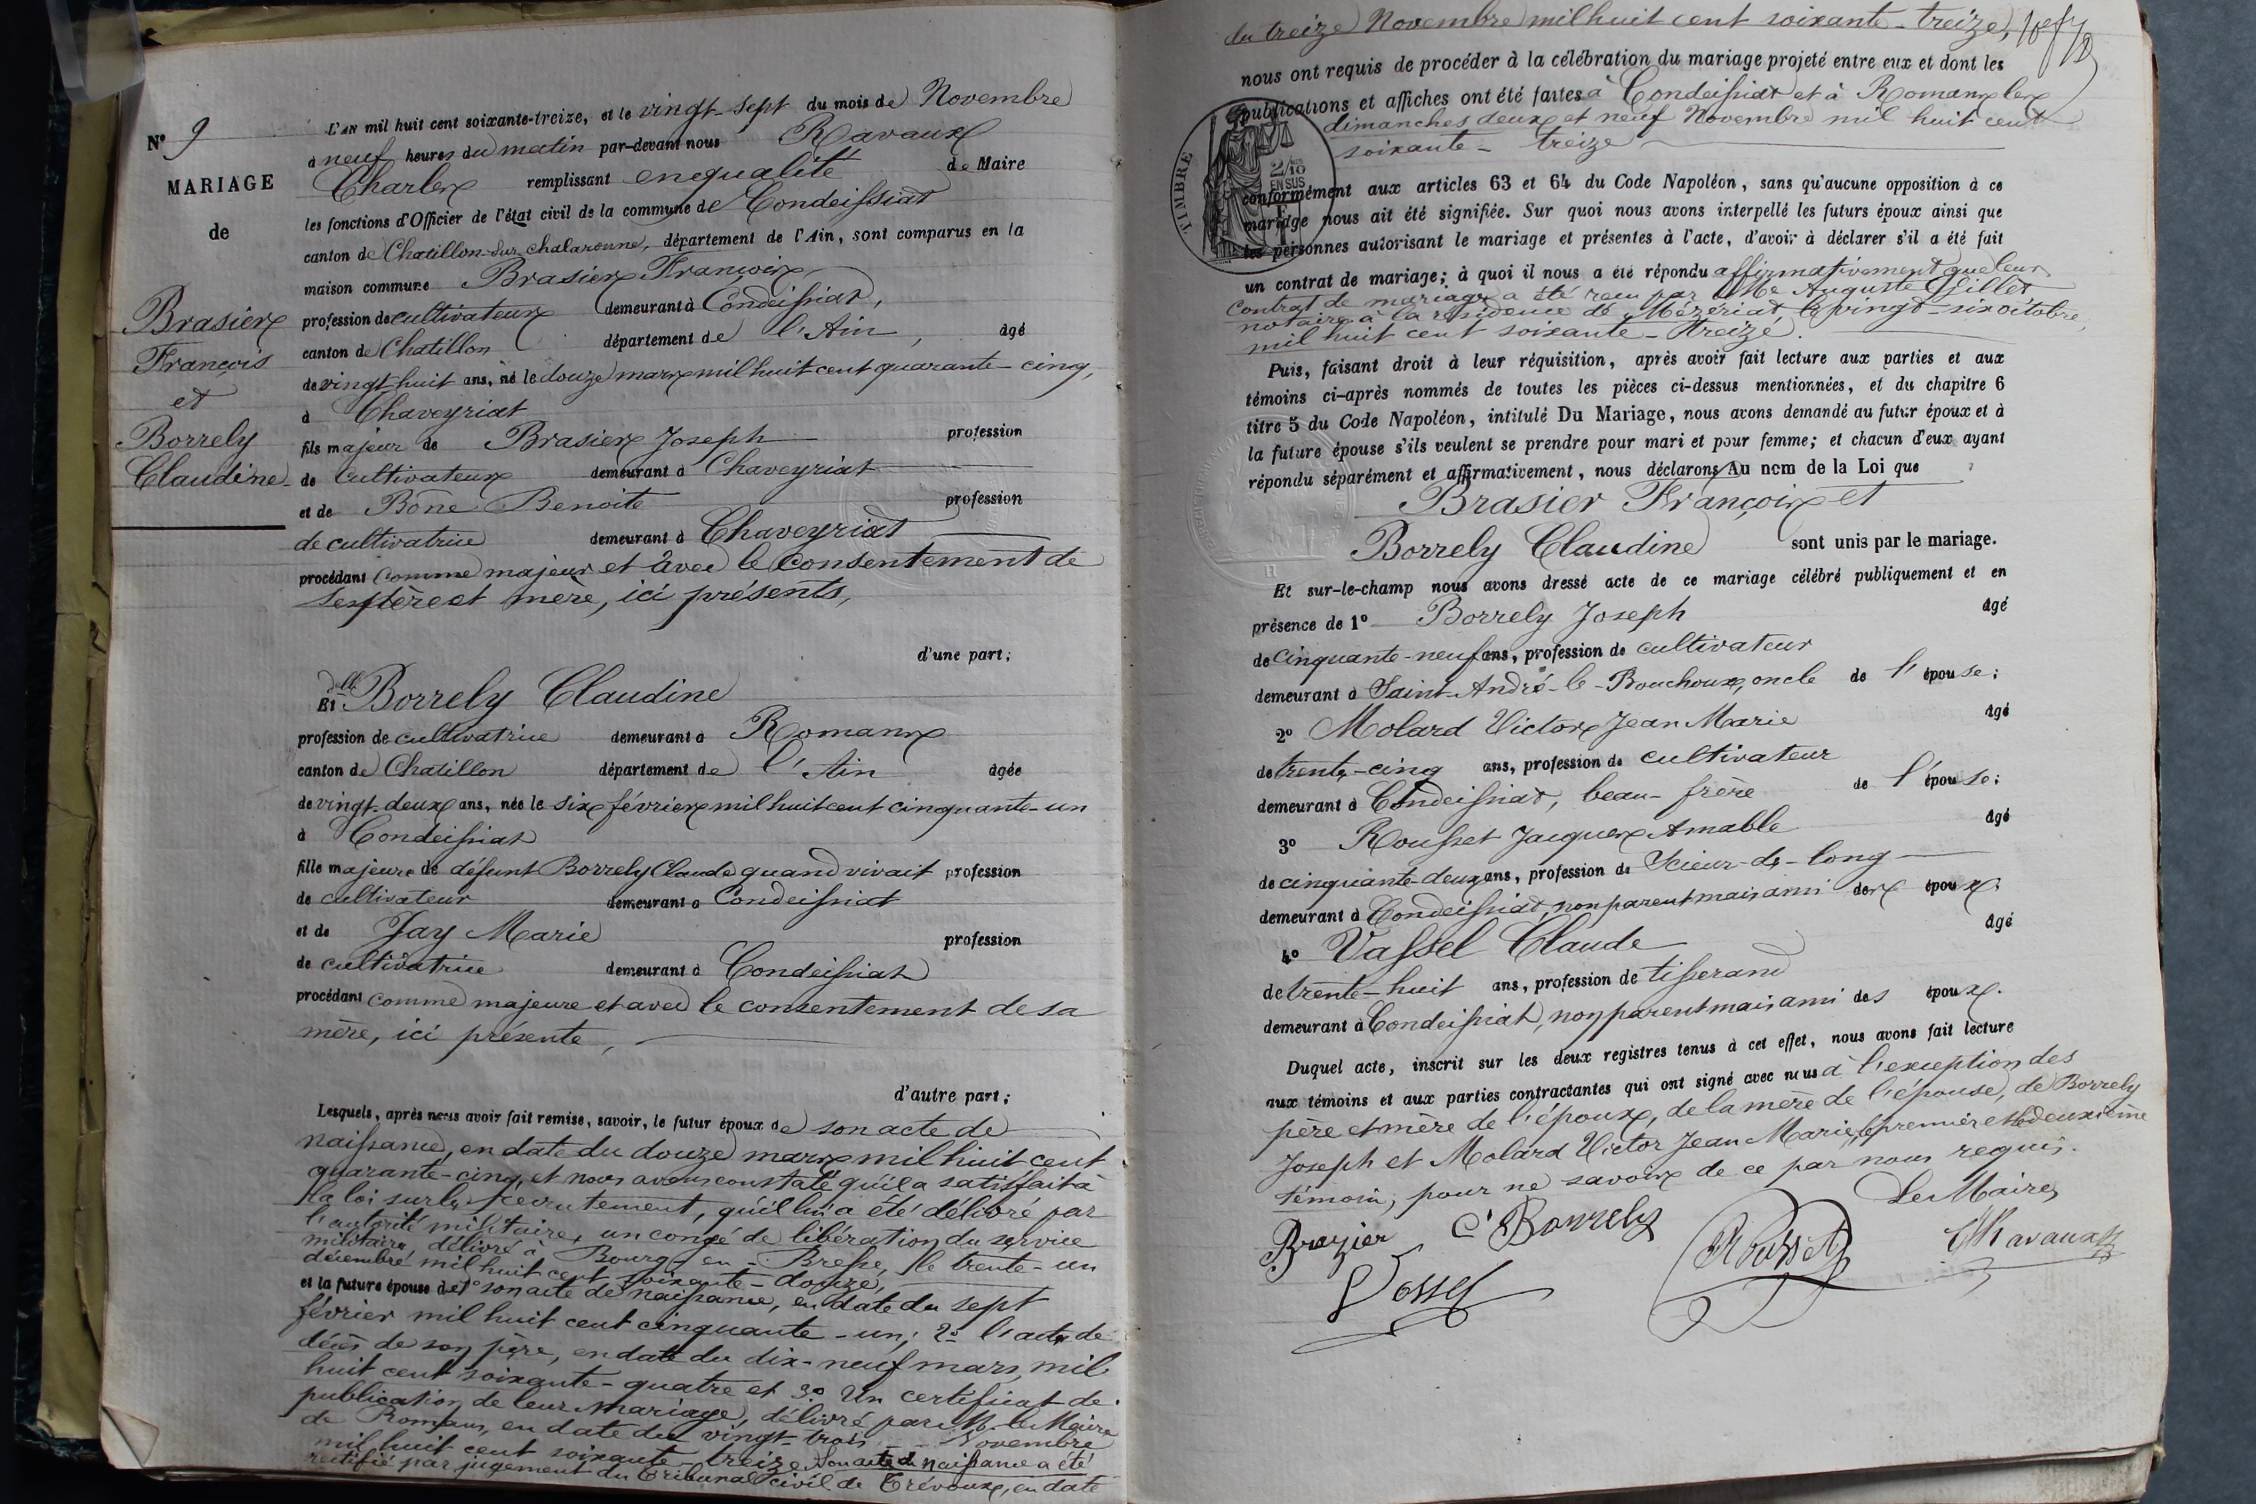 N° 9
MARIAGE
de
Brasier
François
et
Borrely
Claudine
L'AN mil huit cent soixante-treize, et le vingt-sept du mois de Novembre
à neuf heures du matin par-devant nous Ravaux
Charles remplissant en qualité de Maire
les fonctions d'Officier de l'état civil de la commune de Condeissiat
canton de Chatillon-sur-chalaronne, département de l'Ain, sont comparus en la
maison commune Brasier François
profession de cultivateur demeurant à Condeissiat,
canton de Chatillon département de l'Ain, âgé
de vingt huit ans, né le douze mars mil huit cent quarante-cinq,
à Chaveyriat
fils majeur de Brasier Joseph profession
de cultivateur demeurant à Chaveyriat
et de Bône Benoite profession
de cultivatrice demeurant à Chaveyriat
procédant comme majeur et avec le consentement de
ses père et mère, ici présents,
d'une part;
Et dlle Borrely Claudine
profession de cultivatrice demeurant à Romans
canton de Chatillon département de l'Ain âgée
de vingt-deux ans, née le six février mil huit cent cinquante-un
à Condeissiat
fille majeure de défunt Borrely Claude quand vivait profession
de cultivateur demeurant à Condeissiat
et de Jay Marie profession
de cultivatrice demeurant à Condeissiat
procédant comme majeure et avec le consentement de sa
mère, ici présente,
d'autre part;
Lesquels, après nous avoir fait remise, savoir, le futur époux de son acte de
naissance, en date du douze mars mil huit cent
quarante-cinq, et nous avons constaté qu'il a satisfait à
la loi sur le recrutement, qu'il lui a été délivré par
l'autorité militaire, un congé de libération du service
militaire délivré à Bourg-en-Bresse, le trente-un
décembre mil huit cent soixante-douze,
et la future épouse de 1° son acte de naissance, en date du sept
février mil huit cent cinquante-un; 2° l'acte de
décès de son père, en date du dix-neuf mars, mil
huit cent soixante-quatre et 3° Un certificat de
publication de leur mariage, délivré par M. le Maire
de Romans, en date du vingt-trois Novembre
mil huit cent soixante-treize. Son acte de naissance a été
rectifié par jugement du Tribunal civil de Trévoux, en date
du treize Novembre mil huit cent soixante-treize,
nous ont requis de procéder à la célébration du mariage projeté entre eux et dont les
publications et affiches ont été faites à Condeissiat et à Romans les
dimanches deux et neuf Novembre mil huit cent
soixante-treize
TIMBRE
2/10
EN SUS
conformément aux articles 63 et 64 du Code Napoléon, sans qu'aucune opposition à ce
mariage nous ait été signifiée. Sur quoi nous avons interpellé les futurs époux ainsi que
les personnes autorisant le mariage et présentes à l'acte, d'avoir à déclarer s'il a été fait
un contrat de mariage; à quoi il nous a été répondu affirmativement que leur
contrat de mariage a été reçu par Me Auguste Grillet
notaire à la résidence de Mézériat, le vingt-six octobre,
mil huit cent soixante-treize.
Puis, faisant droit à leur réquisition, après avoir fait lecture aux parties et aux
témoins ci-après nommés de toutes les pièces ci-dessus mentionnées, et du chapitre 6
titre 5 du Code Napoléon, intitulé Du Mariage, nous avons demandé au futur époux et à
la future épouse s'ils veulent se prendre pour mari et pour femme; et chacun d'eux ayant
répondu séparément et affirmativement, nous déclarons Au nom de la Loi que
Brasier François et
Borrely Claudine sont unis par le mariage.
Et sur-le-champ nous avons dressé acte de ce mariage célébré publiquement et en
présence de 1° Borrely Joseph âgé
de cinquante-neuf ans, profession de cultivateur
demeurant à Saint-André-le-Bouchoux, oncle de l'épouse;
2° Molard Victor Jean Marie âgé
de trente-cinq ans, profession de cultivateur
demeurant à Condeissiat, beau-frère de l'épouse;
3° Rousset Jacques Amable âgé
de cinquante-deux ans, profession de Scieur-de-long
demeurant à Condeissiat, non parent mais ami des époux;
4° Vassel Claude âgé
de trente-huit ans, profession de tisserand
demeurant à Condeissiat, non parent mais ami des époux.
Duquel acte, inscrit sur les deux registres tenus à cet effet, nous avons fait lecture
aux témoins et aux parties contractantes qui ont signé avec nous à l'exception des
père et mère de l'époux, de la mère de l'épouse, de Borrely
Joseph et Molard Victor Jean Marie, premier et deuxième
témoin, pour ne savoir de ce par nous requis.
Le Maire,
Brazier C Borrely Rousset Ch Ravaux
Vassel